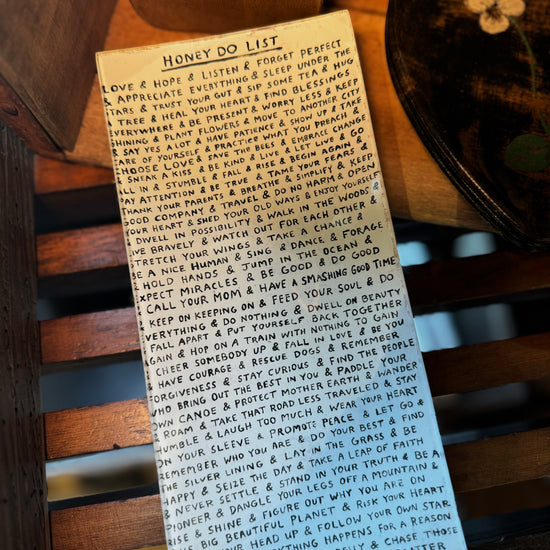 HONEY DO LIST
LOVE & HOPE & LISTEN & FORGET PERFECT
& APPRECIATE EVERYTHING & SLEEP UNDER THE
TARS & TRUST YOUR GUT & SIP SOME TEA & HUG
TREE & HEAL YOUR HEART & FIND BLESSINGS
EVERYWHERE & BE PRESENT & WORRY LESS & KEEP
SHINING & PLANT FLOWERS & MOVE TO ANOTHER CITY
& SAY YES A LOT & HAVE PATIENCE & SHOW UP & TAKE
CARE OF YOURSELF & PRACTICE WHAT YOU PREACH &
CHOOSE LOVE & SAVE THE BEES & EMBRACE CHANGE
SNEAK A KISS & BE KIND & LIVE & LET LIVE & GO
ALL IN & STUMBLE & FALL & RISE & BEGIN AGAIN &
PAY ATTENTION & BE TRUE & TAME YOUR FEARS &
THANK YOUR PARENTS & BREATHE & SIMPLIFY & KEEP
GOOD COMPANY & TRAVEL & DO NO HARM & OPEN
YOUR HEART & SHED YOUR OLD WAYS & ENJOY YOURSELF
DWELL IN POSSIBILITY & WALK IN THE WOODS &
LIVE BRAVELY & WATCH OUT FOR EACH OTHER &
STRETCH YOUR WINGS & TAKE A CHANCE &
BE A NICE HUMAN & SING & DANCE & FORAGE
HOLD HANDS & JUMP IN THE OCEAN &
EXPECT MIRACLES & BE GOOD & DO GOOD
CALL YOUR MOM & HAVE A SMASHING GOOD TIME
& KEEP ON KEEPING ON & FEED YOUR SOUL & DO
EVERYTHING & DO NOTHING & DWELL ON BEAUTY
FALL APART & PUT YOURSELF BACK TOGETHER
AGAIN & HOP ON A TRAIN WITH NOTHING TO GAIN
CHEER SOMEBODY UP & FALL IN LOVE & BE YOU
& HAVE COURAGE & RESCUE DOGS & REMEMBER
FORGIVENESS & STAY CURIOUS & FIND THE PEOPLE
WHO BRING OUT THE BEST IN YOU & PADDLE YOUR
OWN CANOE & PROTECT MOTHER EARTH & WANDER
& ROAM & TAKE THAT ROAD LESS TRAVELED & STAY
HUMBLE & LAUGH TOO MUCH & WEAR YOUR HEART
ON YOUR SLEEVE & PROMOTE PEACE & LET GO &
REMEMBER WHO YOU ARE & DO YOUR BEST & FIND
THE SILVER LINING & LAY IN THE GRASS & BE
HAPPY & SEIZE THE DAY & TAKE A LEAP OF FAITH
& NEVER SETTLE & STAND ON YOUR TRUTH & BE A
PIONEER & DANGLE YOUR LEGS OFF A MOUNTAIN &
RISE & SHINE & FIGURE OUT WHY YOU ARE ON
THIS BIG BEAUTIFUL PLANET & RISK YOUR HEART
YOUR HEAD UP & FOLLOW YOUR OWN STAR
EVERYTHING HAPPENS FOR A REASON
& CHASE THOSE